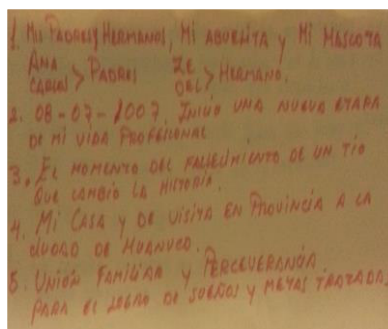 1. Mis Padres y Hermanos, Mi Abuelita y Mi Mascota
Ana
Carlos > Padres
> Hermano.
2. 08-07-2007. Inicio una nueva etapa
de mi vida Profesional
3. El momento del fallecimiento de un tío
que cambio la historia.
4. Mi Casa y de visita en Provincia a la
ciudad de Huanuco.
5. Unión Familiar y Perceverancia
para el logro de sueños y metas trazada